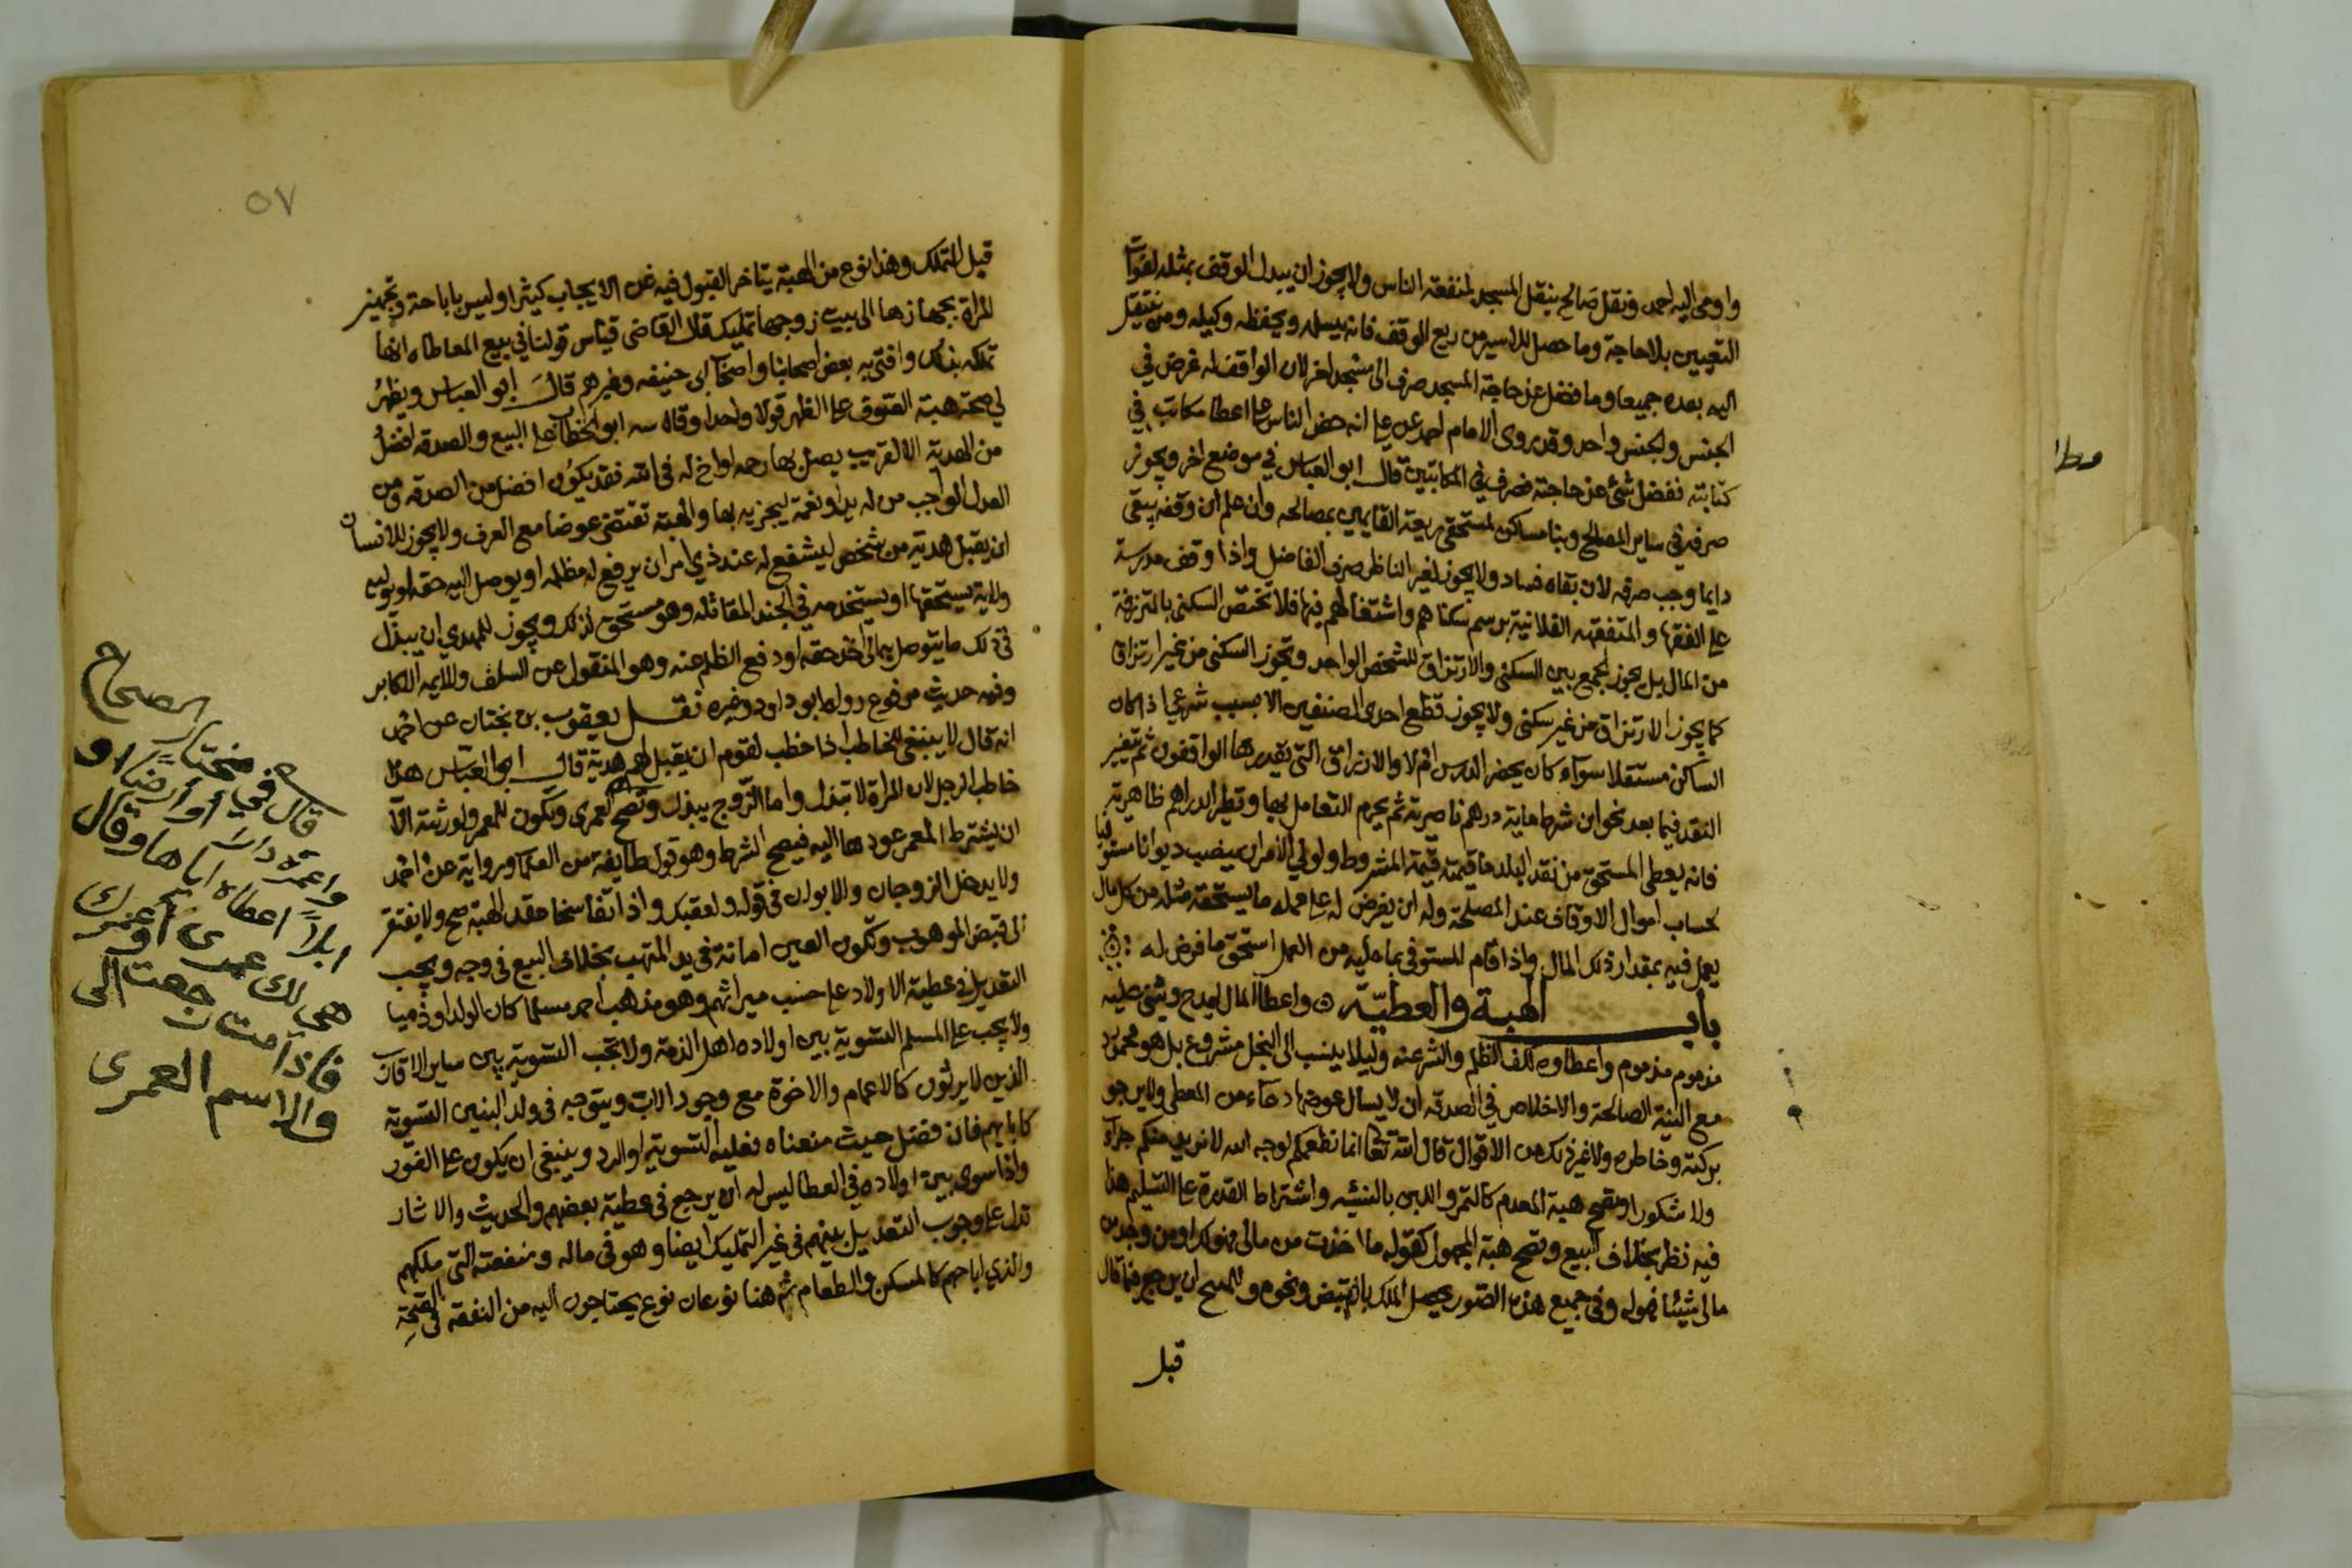 واومى اليه احمد ونقل صالح ينقل المسجد لمنفعة الناس ولا يجوز ان يبدل الوقف بمثله لفوات
التعيين بلا حاجة وما حصل للاسير من ريع الوقف فانه يتسلمه ويحفظه وكيله ومن ينتقل
اليه بعده جميعا وما فضل عن حاجة المسجد صرف الى مسجد اخر لان الواقف له غرض في
الجنس والجنس واحد وقد روى الامام احمد عن علي انه حض الناس على اعطا مكاتب في
كتابته ففضل شئ عن حاجته فصرفه في المكاتبين قال ابو العباس في موضع اخر ويجوز
صرفه في ساير المصالح وبنا مساكن لمستحقي ريعه القايمين بمصالحه وان علم ان وقفه يبقى
دايما وجب صرفه لان بقاه فساد ولا يجوز لغير الناظر صرف الفاضل واذا وقف مدرسة
على الفقها والمتفقهه الفلانية برسم سكناهم واشتغالهم فيها فلا تختص السكنى بالمرتزقة
من المال بل يجوز الجمع بين السكنى والارتزاق للشخص الواحد وتجوز السكنى من غير ارتزاق
كما يجوز الارتزاق من غير سكنى ولا يجوز قطع احدى الصنفين الا بسبب شرعي اذا كان
الساكن مستقلا سوآء كان يحضر الدرس ام لا والارزاق التي يقدرها الواقفون ثم يتغير
النقد فيما بعد نحو ان شرط ماية درهم ناصرية ثم يحرم التعامل بها وتظهر الدراهم ظاهرية
فانه يعطى المستحق من نقد البلد ما قيمته قيمة المشروط ولولي الامر ان ينصب ديوانا مستوفيا
لحساب اموال الاوقاف عند المصلحة وله ان يفرض له على عمله ما يستحقه مثله من كل مال
يعمل فيه بمقدار ذلك المال واذا قام المستوفي بما عليه من العمل استحق ما فرض له
باب الهبة والعطيّة واعطا المال ليمدح ويثنى عليه
مذموم واعطاوه لكف الظلم والشر عنه وليلا ينسب الى البخل مشروع بل هو محمود
مع النية الصالحة والاخلاص في الصدقة ان لا يسال عوضها دعآء من المعطى ولا يرجو
بركته وخاطره ولا غير ذلك من الاقوال قال الله تعالى انما نطعمكم لوجه الله لا نريد منكم جزآء
ولا شكورا وتصح هبة المعدوم كالتمر واللبن بالسنه واشتراط القدرة على التسليم هنا
فيه نظر بخلاف البيع وتصح هبة المجهول كقوله ما اخذت من مالي فهو لك او من وجد من
مالي شيئا فهو له وفي جميع هذه الصور يحصل الملك بالقبض ونحوه وللمبيح ان يرجع فيما قال
قبل
٥٧
قبل التملك وهذا نوع من الهبة يتاخر القبول فيه عن الايجاب كثيرا وليس باباحة وتجهيز
المراة بجهازها الى بيت زوجها تمليك قال القاضي قياس قولنا في بيع المعاطاه انها
تملكه بذلك وافتى به بعض اصحابنا واصحاب ابي حنيفه وغيرهم قال ابو العباس ويظهر
لي صحة هبة الصوف على الظهر قولا واحدا وقاسه ابو الخطاب على البيع والصدقه افضل
من الهدية الا لقريب يصل بها رحمه او اخ له في الله فقد يكون افضل من الصدقه ومن
العدل الواجب من له يد او نعمة ليجزيه بها والهبة تقتضي عوضا مع العرف ولا يجوز للانسان
ان يقبل هدية من شخص ليشفع له عند ذي امر ان يرفع له مظلمه او يوصل اليه حقه او يوليه
ولاية يستحقها او يستخدمه في الجند المقاتله وهو مستحق لذلك ويجوز للمهدي ان يبذل
في ذلك ما يتوصل به الى اخذ حقه او دفع الظلم عنه وهو المنقول عن السلف والايمه الاكابر
وفيه حديث مرفوع رواه ابو داود وغيره نقل يعقوب بن بختان عن احمد
انه قال لا ينبغي للخاطب اذا خطب لقوم ان يقبل لهم هدية قال ابو العباس هذا
خاطب الرجل لان المراة لا تبذل واما الزوج يبذل وتصح العمرى وتكون للمعمر ولورثته الا
ان يشترط المعمر عودها اليه فيصح الشرط وهو قول طايفة من العلما ورواية عن احمد
ولا يدخل الزوجان والابوان في قوله ولعقبك واذا تفاسخا عقد الهبة صح ولا يفتقر
الى قبض الموهوب وتكون العين امانة في يد المتهب بخلاف البيع في وجه ويجب
التعديل في عطية الاولاد على حسب ميراثهم وهو مذهب احمد مسلما كان الولد او ذميا
ولا يجب على المسلم التسوية بين اولاده اهل الذمة ولا تجب التسوية بين ساير الاقارب
الذين لا يرثون كالاعمام والاخوة مع وجود الاب ويتوجه في ولد البنين التسوية
كابايهم فان فضل حيث منعناه فعليه التسوية او الرد وينبغي ان يكون على الفور
واذا سوى بين اولاده في العطا ليس له ان يرجع في عطية بعضهم والحديث والاثار
تدل على وجوب التعديل بينهم في غير التمليك ايضا وهو في ماله ومنفعته التي ملكهم
والذي اباحهم كالمسكن والطعام ثم هنا نوعان نوع يحتاجون اليه من النفقه في الصحة
قال في مختار الصحاح
واعمره دارا أو أرضا او
ابلاً اعطاه اياها وقال
هي لك عمرى أو عمرك
فاذا مت رجعت الي
والاسم العمرى